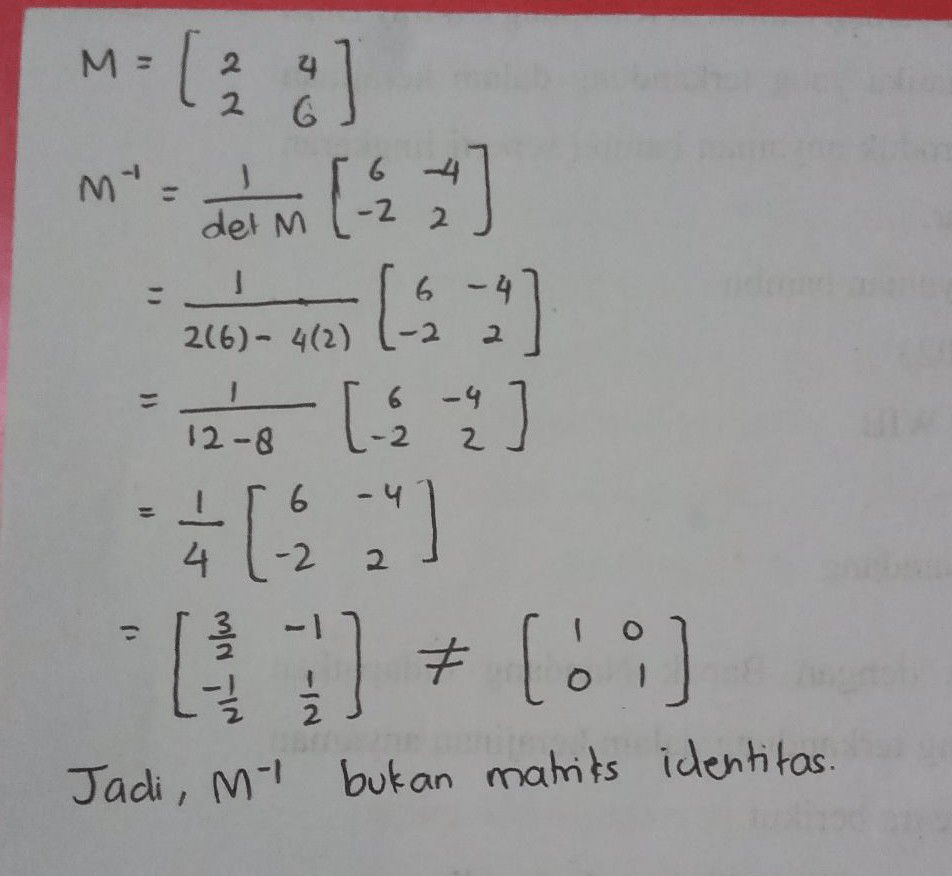 M = [ 2 4 ; 2 6 ]
M⁻¹ = 1/det M [ 6 -4 ; -2 2 ]
= 1/2(6) - 4(2) [ 6 -4 ; -2 2 ]
= 1/12-8 [ 6 -4 ; -2 2 ]
= 1/4 [ 6 -4 ; -2 2 ]
= [ 3/2 -1 ; -1/2 1/2 ] ≠ [ 1 0 ; 0 1 ]
Jadi, M⁻¹ bukan matriks identitas.